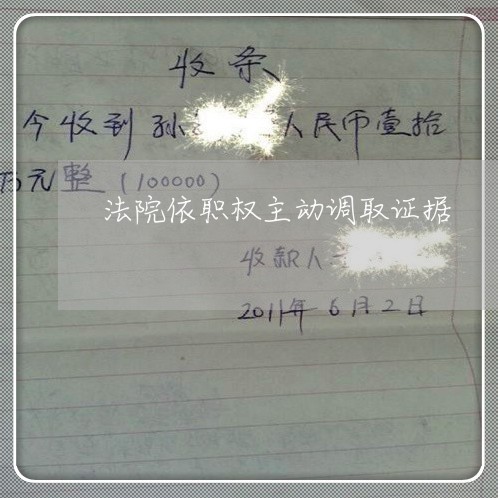 收条
今收到孙 人民币壹拾
万元整(100000)
法院依职权主动调取证据
收款人
2011年6月2日